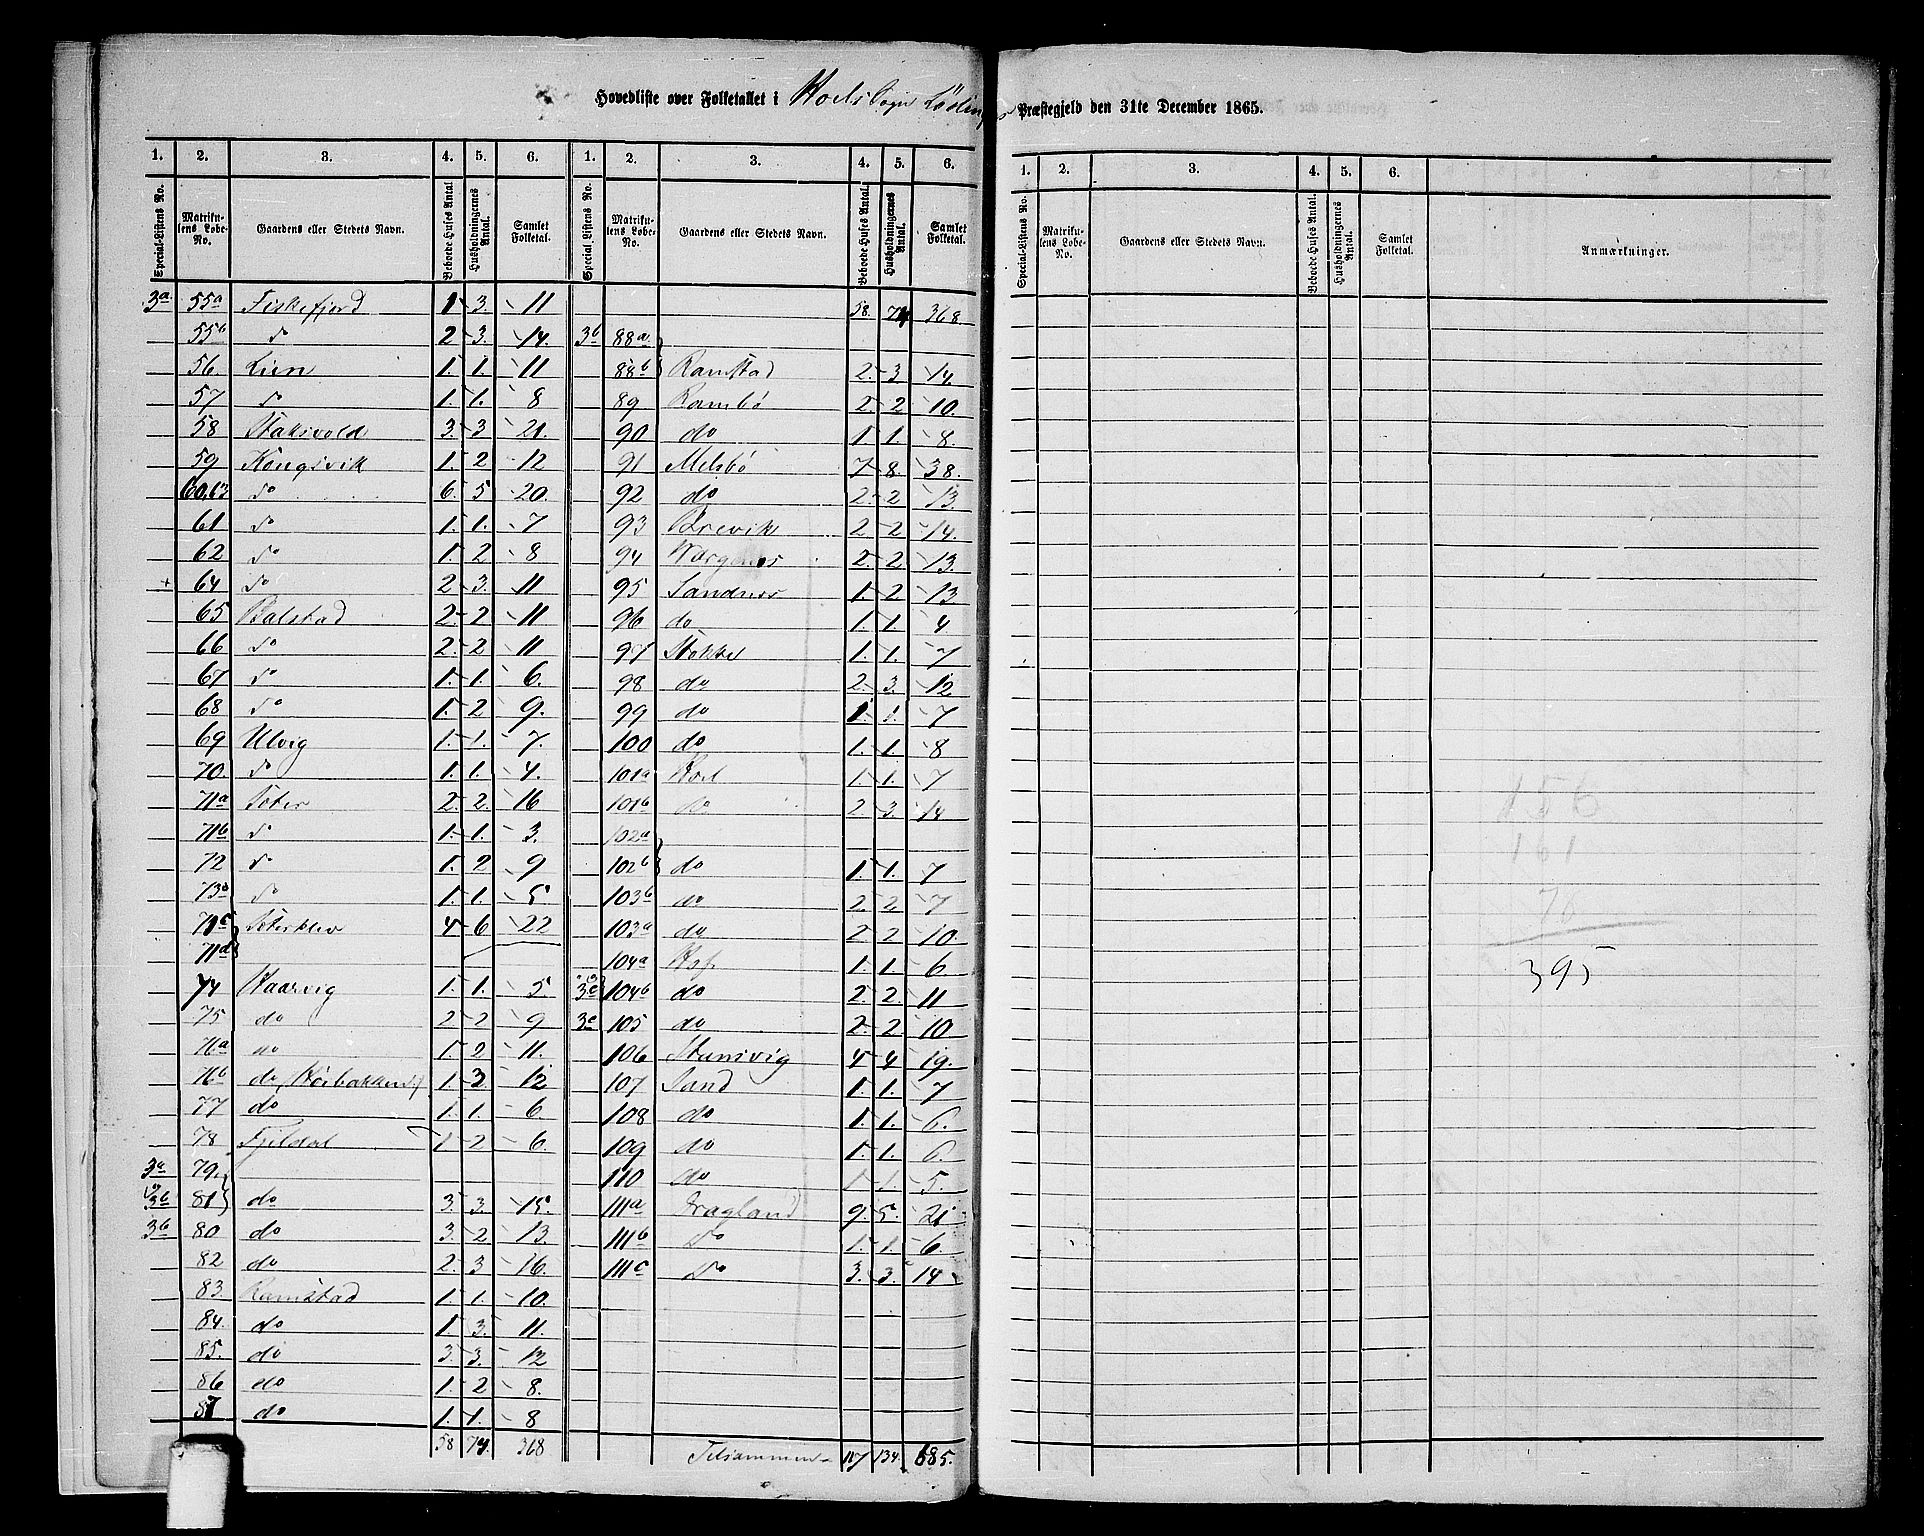 Hovedliste over Folketallet i Hoels Sogn Lødingens Præstegjeld den 31te December 1865.
1. 2. 3. 4. 5. 6. 1. 2. 3. 4. 5. 6.
Special-Listens No. Matrikulens Løbe-No. Gaardens eller Stedets Navn. Beboede Huses Antal Husholdningernes Antal. Samlet Folketal. Special Listens No. Matrikulens Løbe-No. Gaardens eller Stedets Navn. Beboede Huses Antal. Husholdningernes Antal. Samlet Folketal.
3a 55a Fiskefjord 1 3. 11
55b do 2 3. 14.
56 Lien 1. 1. 11
57 do 1. 1. 8
58 Staksvold 3. 3 21.
59 Kongsvik 1. 2 12
60,63 do 6. 5 20.
61 do 1. 1. 7
62 do 1. 2 8
+ 64 do 2 3. 11
65 Balstad 2. 2 11
66 do 2. 2 11
67 do 1. 1. 6.
68 do 1. 2 9.
69 Ulvig 1. 1. 7.
70. do 1. 1. 4.
71a Töter 2. 2. 16
71b do 1. 1. 3.
72 do 1. 2 9
73a do 1. 1. 5.
71c Töterklev 4 6 22
71d
74 Haarvig 1. 1. 5.
75 do 2 2 9
76a do 1. 2 11.
76b do (Höibakken) 1. 3 12
77 do 1. 1. 6.
78 Fjeldal 1 2 6.
3a 79.
og 3b 81 do 3. 3. 15.
3b 80 do 3. 2 13.
82 do 2. 3 16.
83. Ramstad 1. 1. 10.
84. do 1. 3. 11.
85. do 3. 3. 12
86 do 1. 2 8.
87 do 1. 1. 8
58 74. 368
58. 74 368.
3b 88a
88b Ramstad 2. 3 14.
89 Rambö 2. 2 10.
90 do 1. 1. 8.
91 Melsbö 7 8. 38.
92 do 2. 2 13.
93 Brevik 2 2 14.
94 Vargenes 2. 2 13.
95 Sandnes 1. 2 13
96 do 1. 1. 4.
97 Stokke 1. 1. 7
98 do 2. 3. 12
99 do 1. 1. 7
100 do 1. 1. 8
101a Hoel 1. 1. 7
101b do 2. 3. 14
102a
102b do 1. 1. 7
103b do 2 2. 7
103a do 2 2 10.
104a Hof 1. 1. 6
3c 104b do 2 2. 11
3c 105 do 2. 2. 10
106 Stunsvig 4 4 19.
107 Sand 1. 1. 7
108 do 1. 1. 6.
109 do 1. 1. 6.
110 do 1 1. 5.
111a Dragland 9. 5. 21
111b do 1. 1. 6.
111c do 3. 3. 14
Tilsammen 117 134. 685.
1. 2. 3. 4. 5. 6.
Special-Listens No. Matrikulens Løbe-No. Gaardens eller Stedets Navn. Beboede Huses Antal. Husholdningernes Antal. Samlet Folketal. Anmærkninger.
156
161
76
395